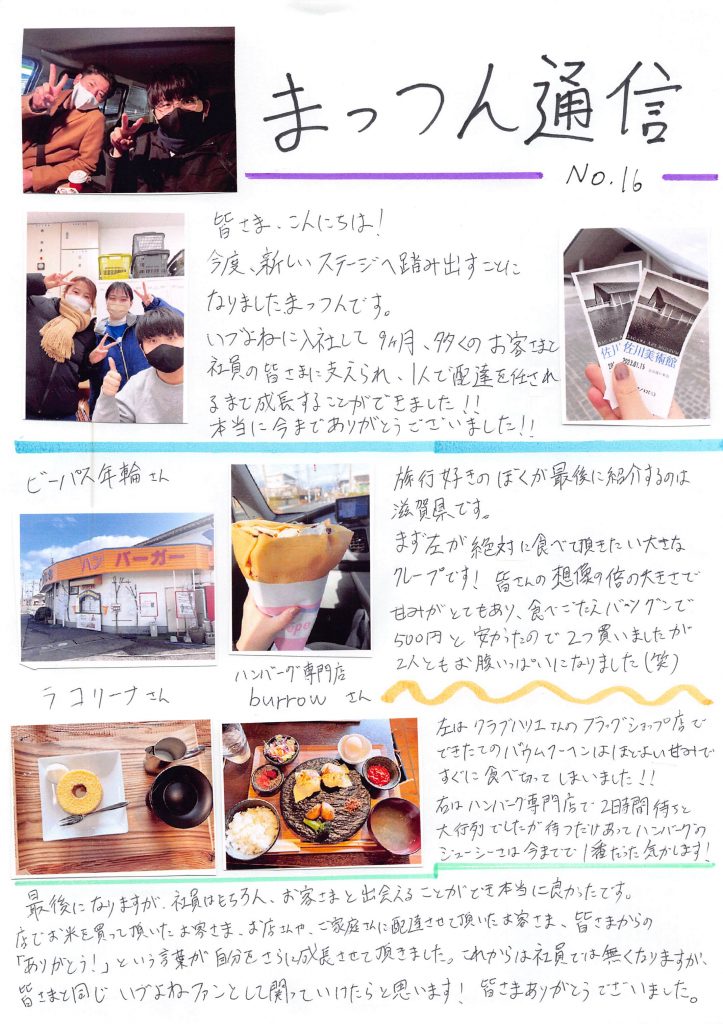 まっつん通信
No.16
皆さま、こんにちは!
今度、新しいステージへ踏み出すことに
なりましたまっつんです。
いづよねに入社して9ヶ月、多くのお客さまと
社員の皆さまに支えられ、1人で配達を任され
るまで成長することができました!!
本当に今までありがとうございました!!
佐川美術館
ビーパス年輪さん
バーガー
旅行好きのぼくが最後に紹介するのは
滋賀県です。
まず左が絶対に食べて頂きたい大きな
クレープです!皆さんの想像の倍の大きさで
甘みがとてもあり、食べごたえバツグンで
500円と安かったので2つ買いましたが
2人ともお腹いっぱいになりました(笑)
ラコリーナさん
ハンバーグ専門店
burrowさん
左はクラブハリエさんのフラッグショップ店で
できたてのバウムクーヘンはほどよい甘みで
すぐに食べ切ってしまいました!!
右はハンバーグ専門店で2時間待ちと
大行列でしたが待つだけあってハンバーグの
ジューシーさは今までで1番だった気がします!
最後になりますが、社員はもちろん、お客さまと出会えることができ本当に良かったです。
店でお米を買って頂いたお客さま、お店さんや、ご家庭さんに配達させて頂いたお客さま、皆さまからの
「ありがとう!」という言葉が自分をさらに成長させて頂きました。これからは社員では無くなりますが、
皆さまと同じいづよねファンとして関っていけたらと思います!皆さまありがとうございました。